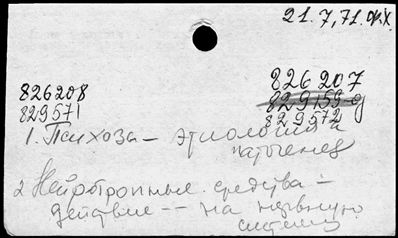 21.7,71.
826208
829571
826207
829159-д
829572
1. Психоза — этиология и
патогенез
2 Нейротропные средства —
действие -- на нервную
систему